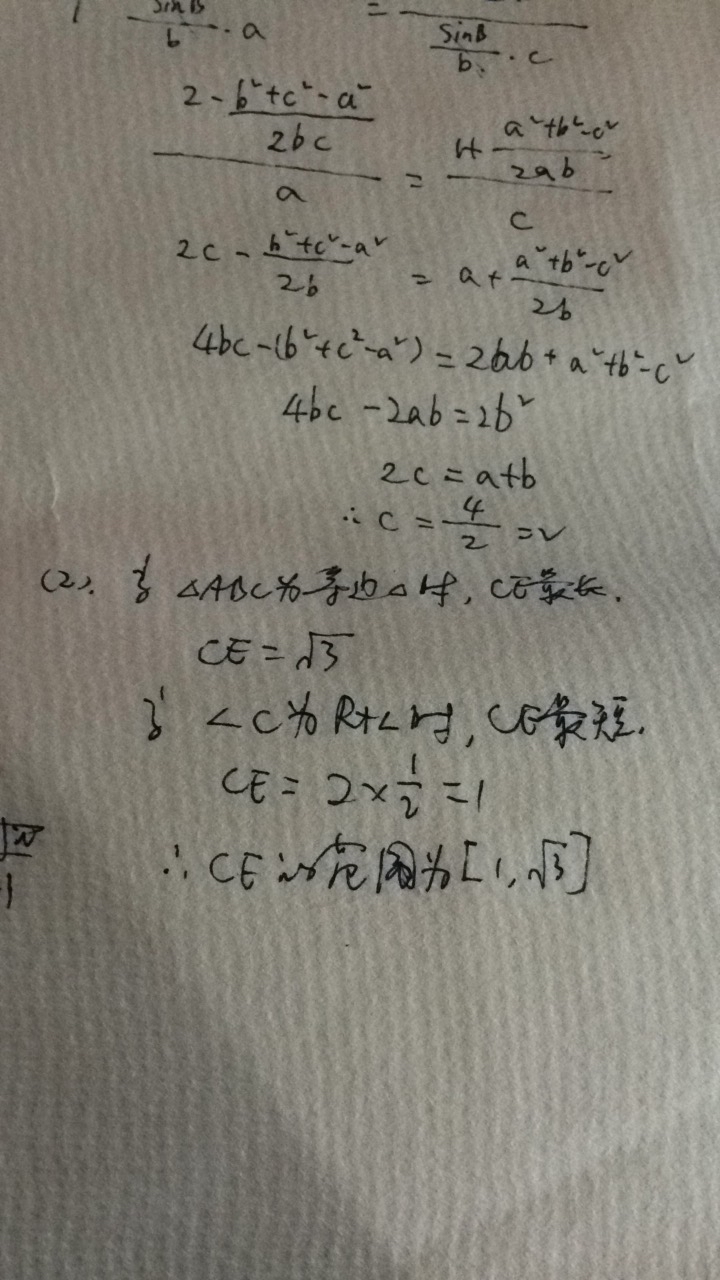 sinB/b · a = / sinB/b · c
(2 - (b²+c²-a²)/2bc)/a = (1+ (a²+b²-c²)/2ab)/c
2c - (b²+c²-a²)/2b = a + (a²+b²-c²)/2b
4bc-(b²+c²-a²) = 2ab + a²+b²-c²
4bc - 2ab = 2b²
2c = a+b
∴ c = 4/2 = 2
(2). 当 △ABC为等边△时, CE最长.
CE = √3
当 ∠C为 Rt∠时, CE最短.
CE = 2×1/2 = 1
∴ CE的范围为[1,√3]